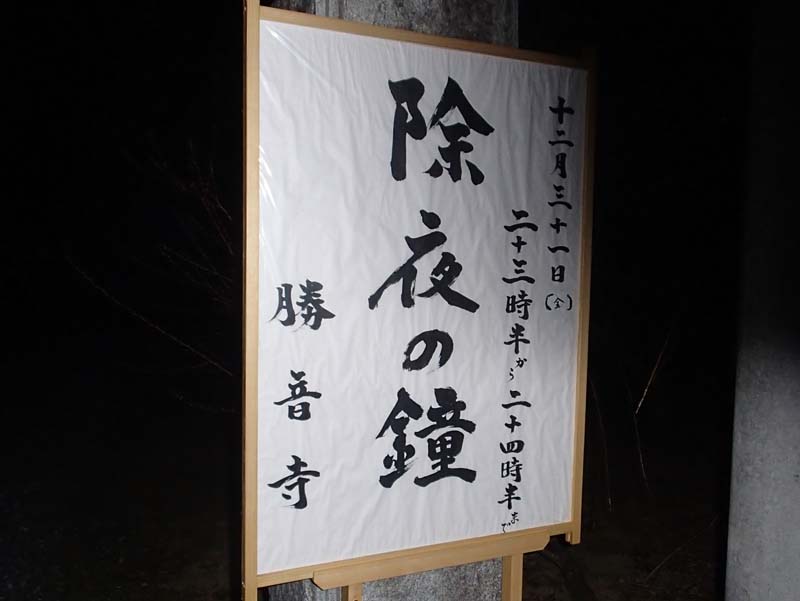 十二月三十一日(金)
二十三時半から二十四時半まで
除夜の鐘
勝音寺